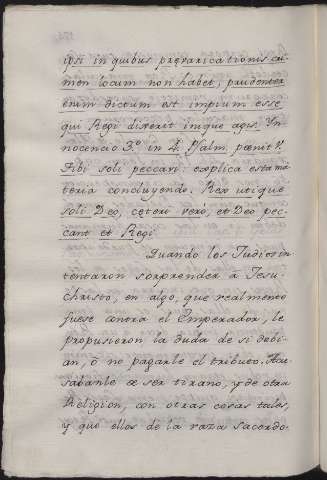 ipsi in quibus prevaricationis cri-
men locum non habet, prudenter
enim dictum est impium esse
qui Regi dixerit inique agis. Yn-
nocencio 3.º in 4. Psalm. pœnit. V.
Tibi soli peccavi: explica esta ma-
teria concluyendo. Rex utique
soli Deo, ceteri vero, et Deo pec-
cant et Regi.
Quando los Judios in-
tentaron sorprender a Jesu-
Christo, en algo, que realmente
fuese contra el Emperador, le
propusieron la duda de si debi-
an, ò no pagarle el tributo.
sabanle de ser tirano, y de otra
Religion, con otras cosas tales,
y que ellos de la raza sacerdo-